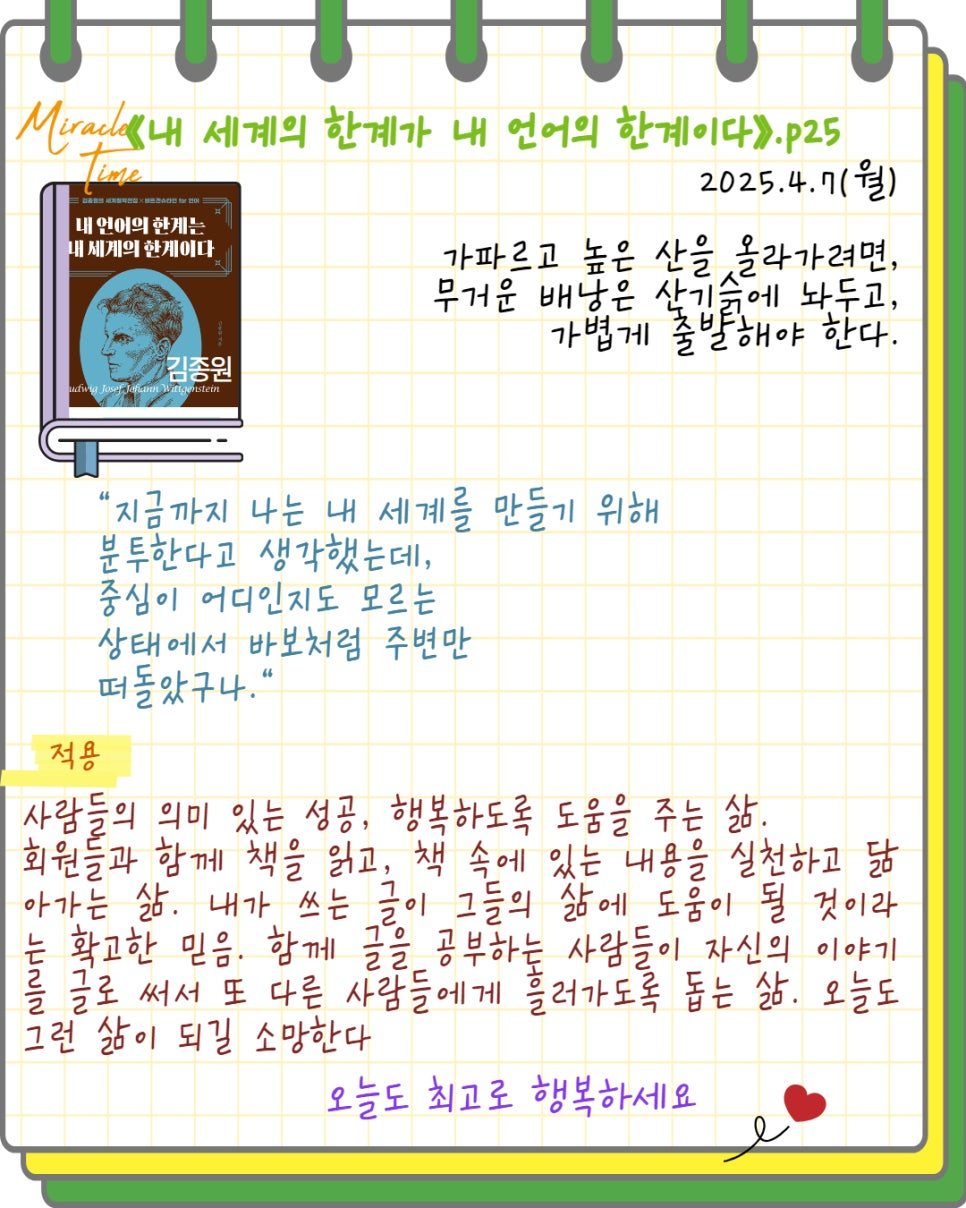 Miracle
Time
《내 세계의 한계가 내 언어의 한계이다》.p25
2025.4.7(월)
김종원의 세계철학전집 × 비트겐슈타인 for 언어
내 언어의 한계는
내 세계의 한계이다
김종원
udwig Josef Johann Wittgenstein
가파르고 높은 산을 올라가려면,
무거운 배낭은 산기슭에 놔두고,
가볍게 출발해야 한다.
“지금까지 나는 내 세계를 만들기 위해
분투한다고 생각했는데,
중심이 어디인지도 모르는
상태에서 바보처럼 주변만
떠돌았구나.“
적용
사람들의 의미 있는 성공, 행복하도록 도움을 주는 삶.
회원들과 함께 책을 읽고, 책 속에 있는 내용을 실천하고 닮
아가는 삶. 내가 쓰는 글이 그들의 삶에 도움이 될 것이라
는 확고한 믿음. 함께 글을 공부하는 사람들이 자신의 이야기
를 글로 써서 또 다른 사람들에게 흘러가도록 돕는 삶. 오늘도
그런 삶이 되길 소망한다
오늘도 최고로 행복하세요